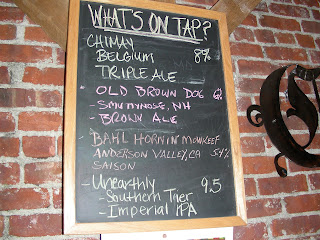 WHAT'S ON TAP?
CHIMAY
BELGIUM 8%
TRIPLE ALE
- OLD BROWN DOG
- SMUTTYNOSE, NH
- BROWN ALE
- BAHL HORNIN'
ANDERSON VALLEY, CA 5.4%
SAISON
- Unearthly 9.5
- Southern Tier
- Imperial IPA